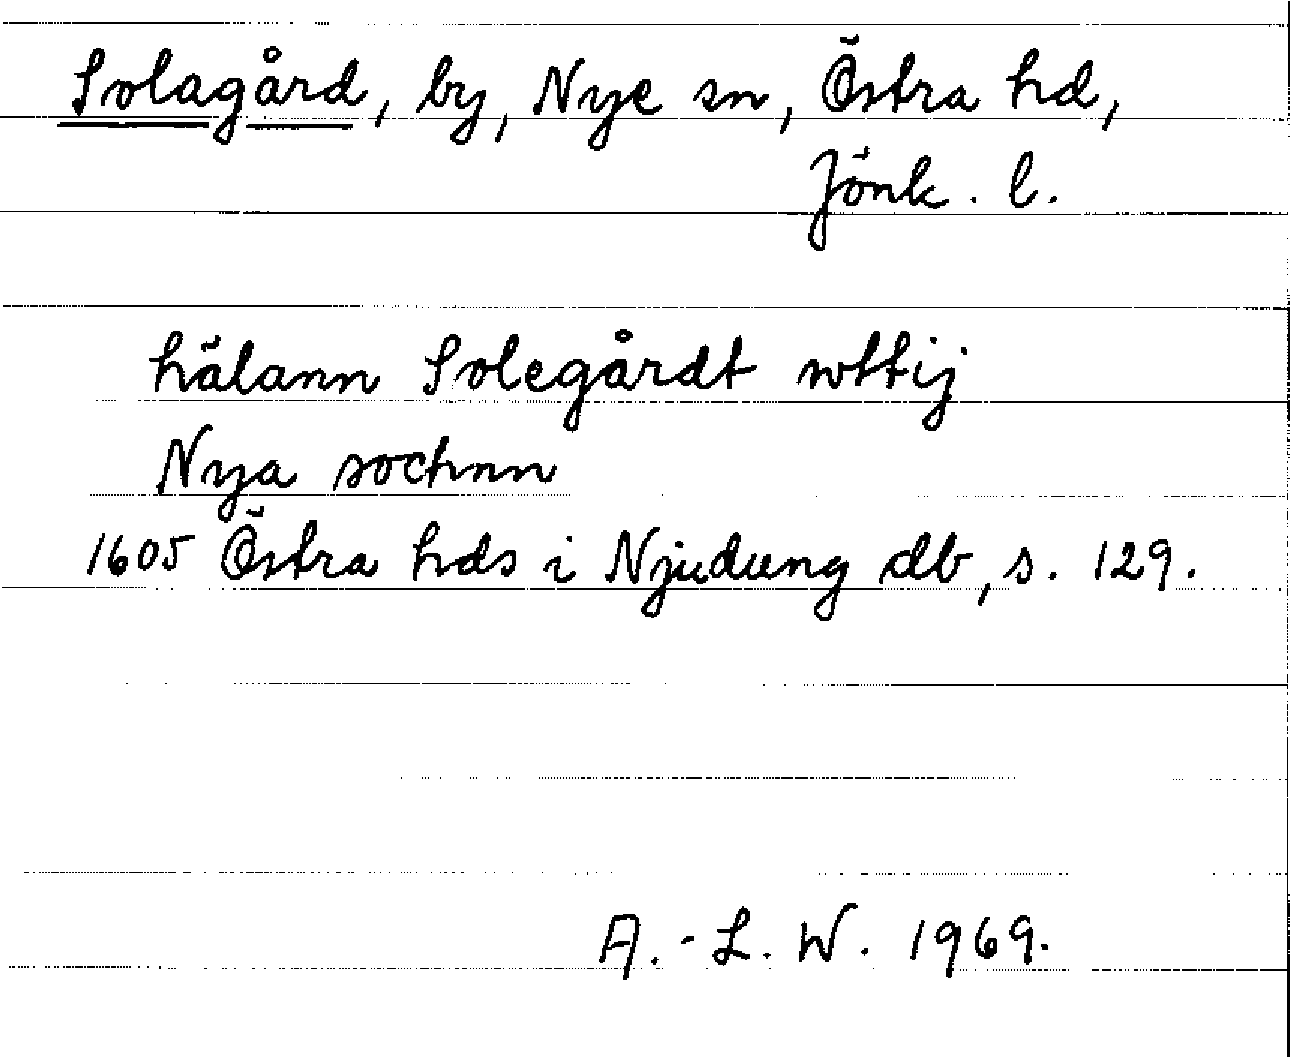 Solagård, by, Nye sn, Östra hd,
Jönk. l.
hälann Solegårdt wttij
Nya sochnn
1605 Östra hds i Njudung db, s. 129.
A.-L. W. 1969.